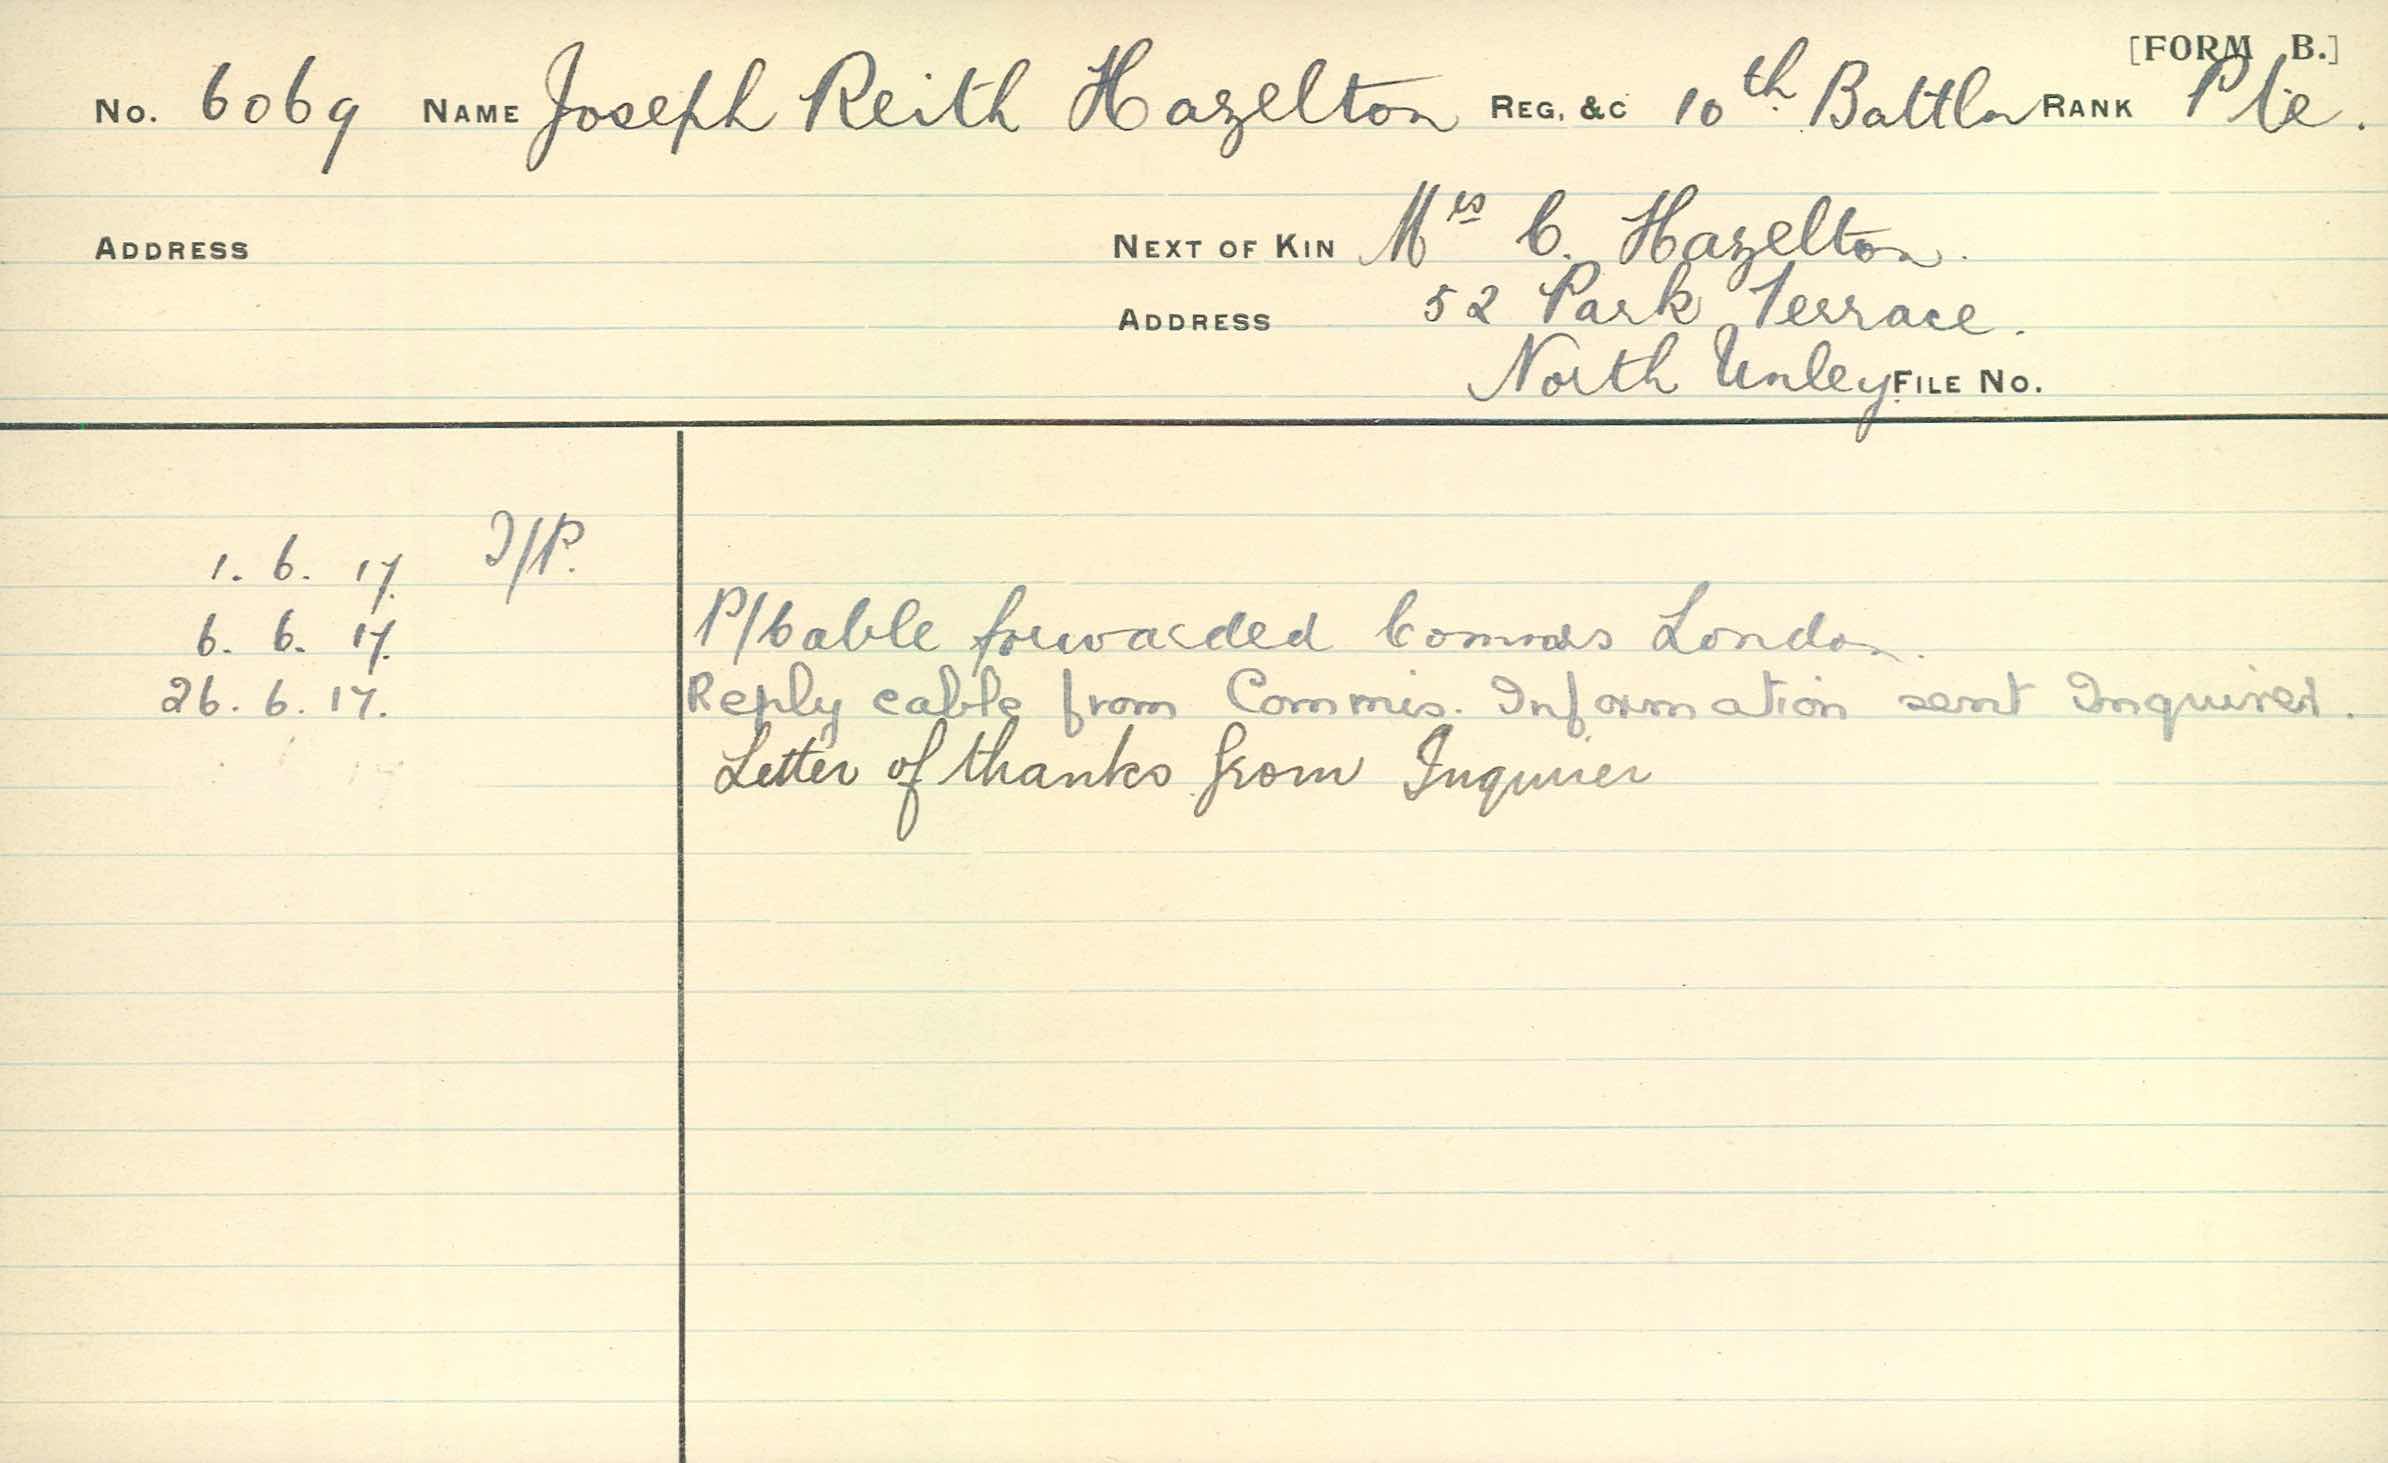 [FORM B.]
No. 6069 NAME Joseph Reith Hazelton REG. &C 10th Battln RANK Pte.
ADDRESS NEXT OF KIN Mrs C. Hazelton.
ADDRESS 52 Park Terrace.
North Unley. FILE No.
1. 6. 17. I/P.
6. 6. 17. P/Cable forwarded Commrs London.
26. 6. 17. Reply cable from Commis. Information sent Inquirer.
Letter of thanks from Inquirer